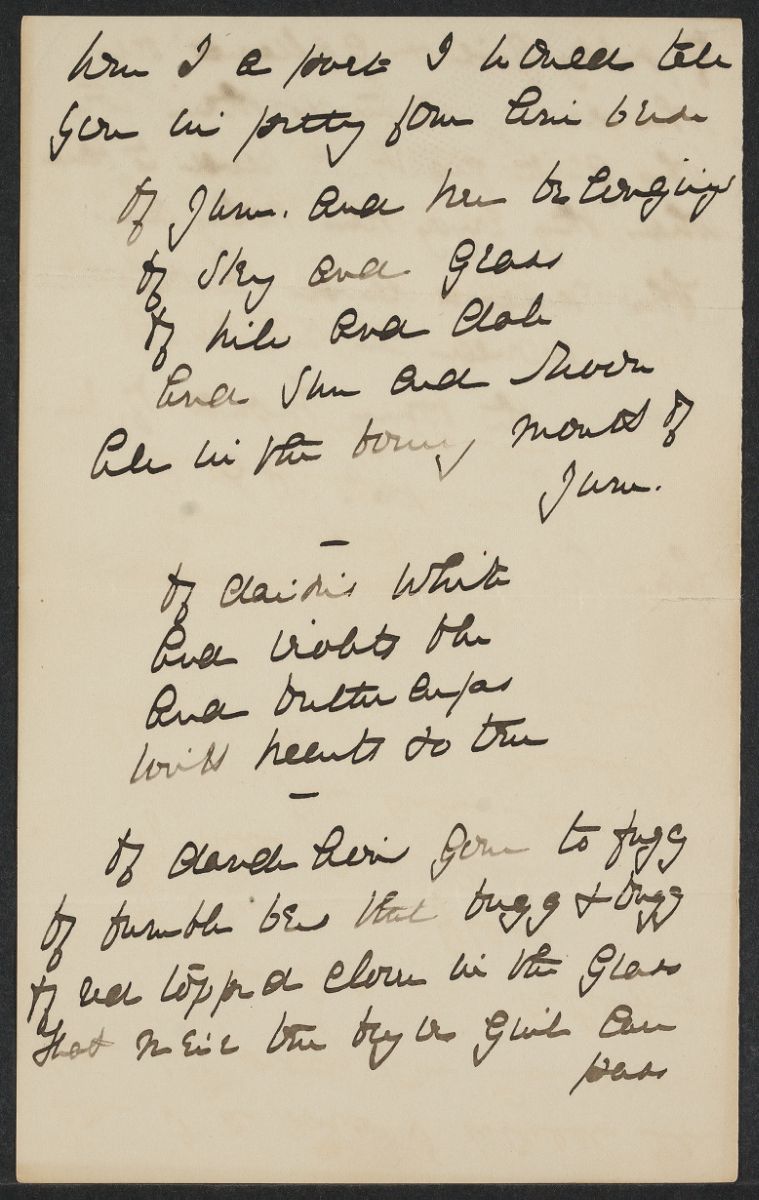 were I a poet I would tell
You in pretty form
of June. and her belongings
of Sky and Grass
of hill and dale
And Sun and Moon
All in the bonny month of
June.
—
of daisies White
And violets blue
And buttercups
with hearts so true
—
of dandelions Gone to fuzz
of bumble bees that buzz & buzz
of red topped clover in the Grass
that none but boys or Girls can
pass